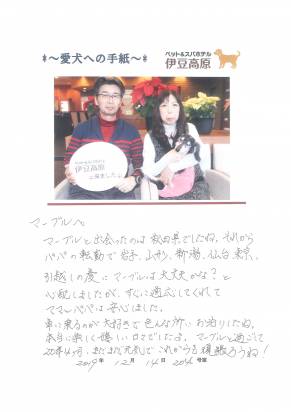 *~愛犬への手紙~*
ペット&スパホテル
伊豆高原
伊豆高原
に来ました♪
マーブルへ
マーブルと出会ったのは秋田県でしたね。それから
パパの転勤で岩手、山形、新潟、仙台、東京、
引越しの度にマーブルは大丈夫かな?と
心配しましたが、すぐに適応してくれて
ママもパパは安心しました。
車に乗るのが大好きで色んな所にお泊りしたね。
本当に楽しく嬉しい日々でしたよ。マーブルと過ごして
まだまだ元気でこれからも頑張ろうね!
2019年 12月 14日 204号室